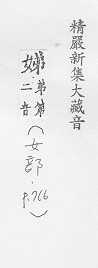 精嚴新集大藏音
娣弟第二音(女部.p.766)